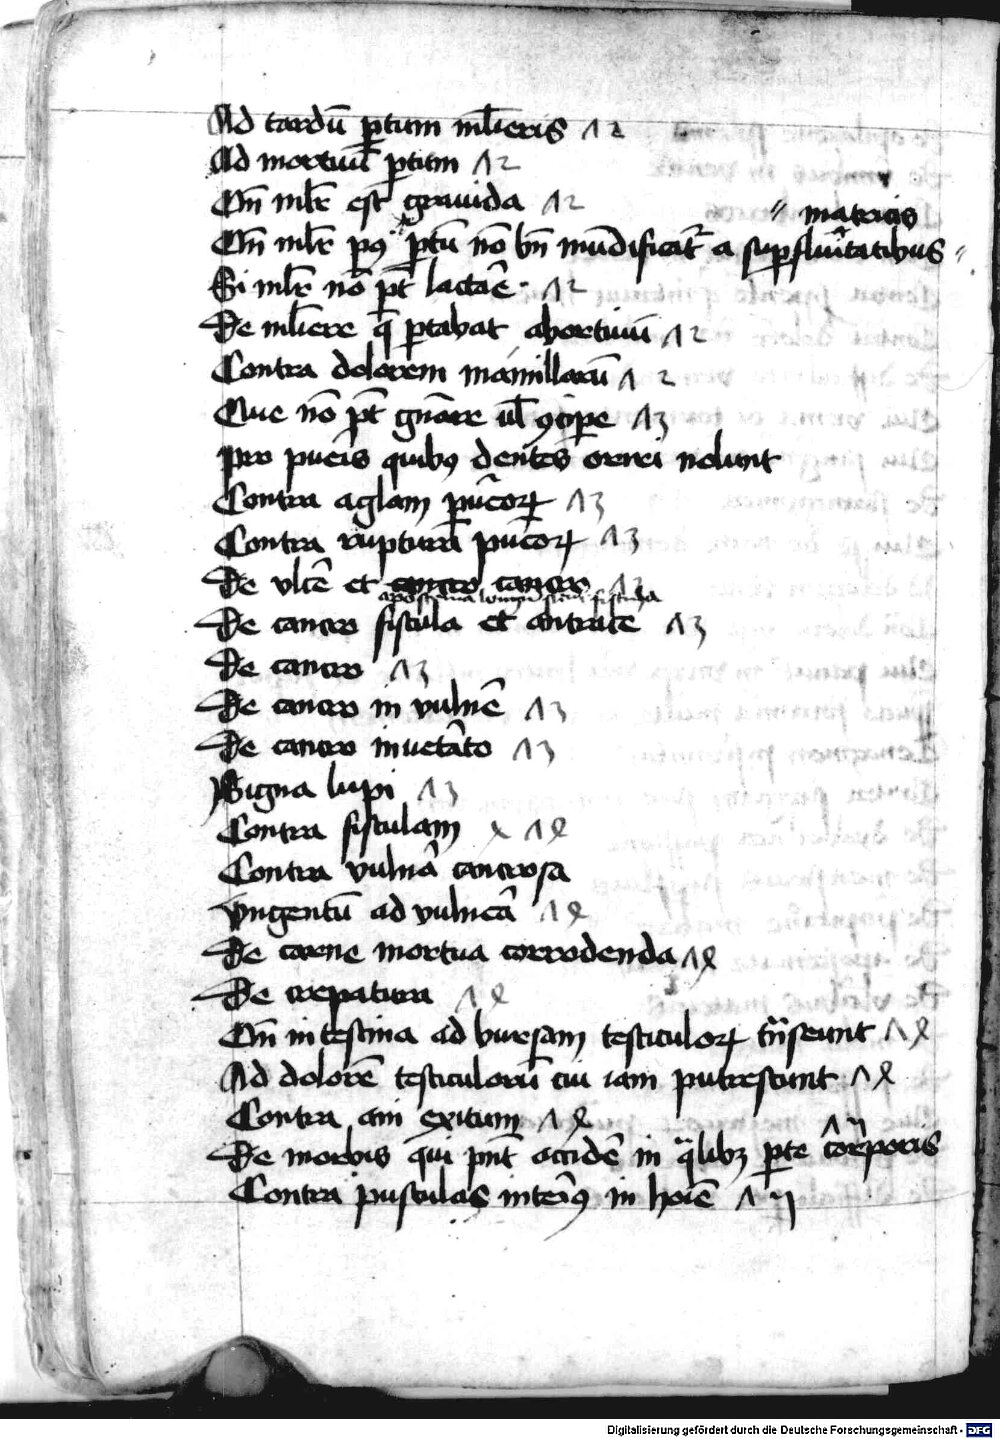 Ad tardū ꝑtum ml̄ieris 12
Ad mortuū ꝑtum 12
Cū ml̄r est grauida 12
matricis
Cū ml̄r pꝰ ꝑtū nō bn̄ mūdificat᷑ a suꝑfluitatibus
Si ml̄r nō pt̄ lactare 12
De ml̄iere q̄ ꝑtabat abortiuū 12
Contra dolorem mamillarū 12
Que nō pt̄ gn̄are ul̄ ꝯciꝑe 13
Pro pueris quibꝰ dentes oriri nolunt
Contra puerorꝝ 13
Contra rupturā puerorꝝ 13
De vlcē et cancro 13
apostema fistula
De cancro fistula et antrace 13
De cancro 13
De cancro in vulnē 13
De cancro inuetāto 13
Signa lupi 13
Contra fistulam x 14
Contra vulnā cancrosa
Vngentū ad vulnera 14
De carne mortua corrodenda 14
De crepatura 14
Cū intestina ad bursam testiculorꝝ trāseunt 14
Ad dolorē testiculorū cū iam putrescunt 14
Contra ani exitum 14
De morbis qui pn̄t accidē in q̄libꝫ ꝑte corporis
Contra pustulas interiꝰ in hoīe
Digitalisierung gefördert durch die Deutsche Forschungsgemeinschaft - DFG